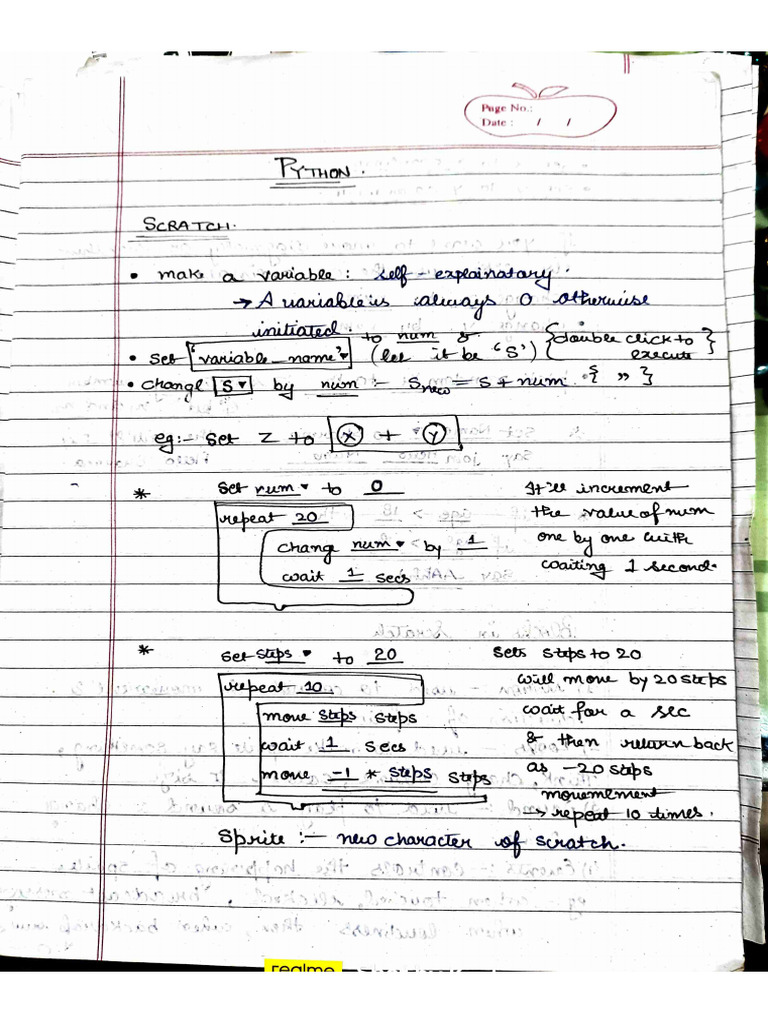 Page No.:
Date : / /
PYTHON.
SCRATCH.
• make a variable : self-explainatory.
→ A variable is always 0 otherwise
initiated.
• set 'variable_name'▾ to num & (let it be 'S') {double click to execute}
• change S▾ by num :- Snew = S + num {s ” }
eg:- set Z to X + Y
* set num▾ to 0 It'll increment
repeat 20 the value of num
change num▾ by 1 one by one with
wait 1 secs waiting 1 second.
* set steps▾ to 20 sets steps to 20
repeat 10 will move by 20 steps
move steps steps wait for a sec
wait 1 secs & then return back
move -1 * steps steps as -20 steps
moumement
→ repeat 10 times.
Sprite :- new character of scratch.
realme